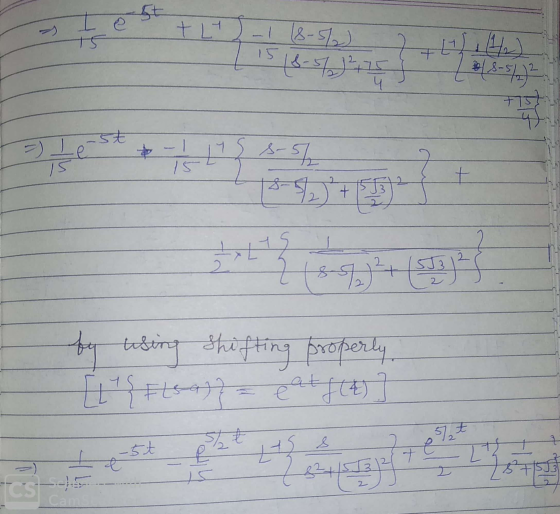 ⇒ 1/15 e^{-5t} + L^{-1} { -1/15 (s-5/2) / ((s-5/2)^2 + 75/4) } + L^{-1} { (1/2) / ((s-5/2)^2 + 75/4) }
⇒ 1/15 e^{-5t} - 1/15 L^{-1} { (s-5/2) / ((s-5/2)^2 + (5√3/2)^2) } +
1/2 × L^{-1} { 1 / ((s-5/2)^2 + (5√3/2)^2) }.
by using shifting property.
[L^{-1} { F(s-a) } = e^{at} f(t)]
⇒ 1/15 e^{-5t} - e^{5/2 t}/15 L^{-1} { s / (s^2 + (5√3/2)^2) } + e^{5/2 t}/2 L^{-1} { 1 / (s^2 + (5√3/2)
CS